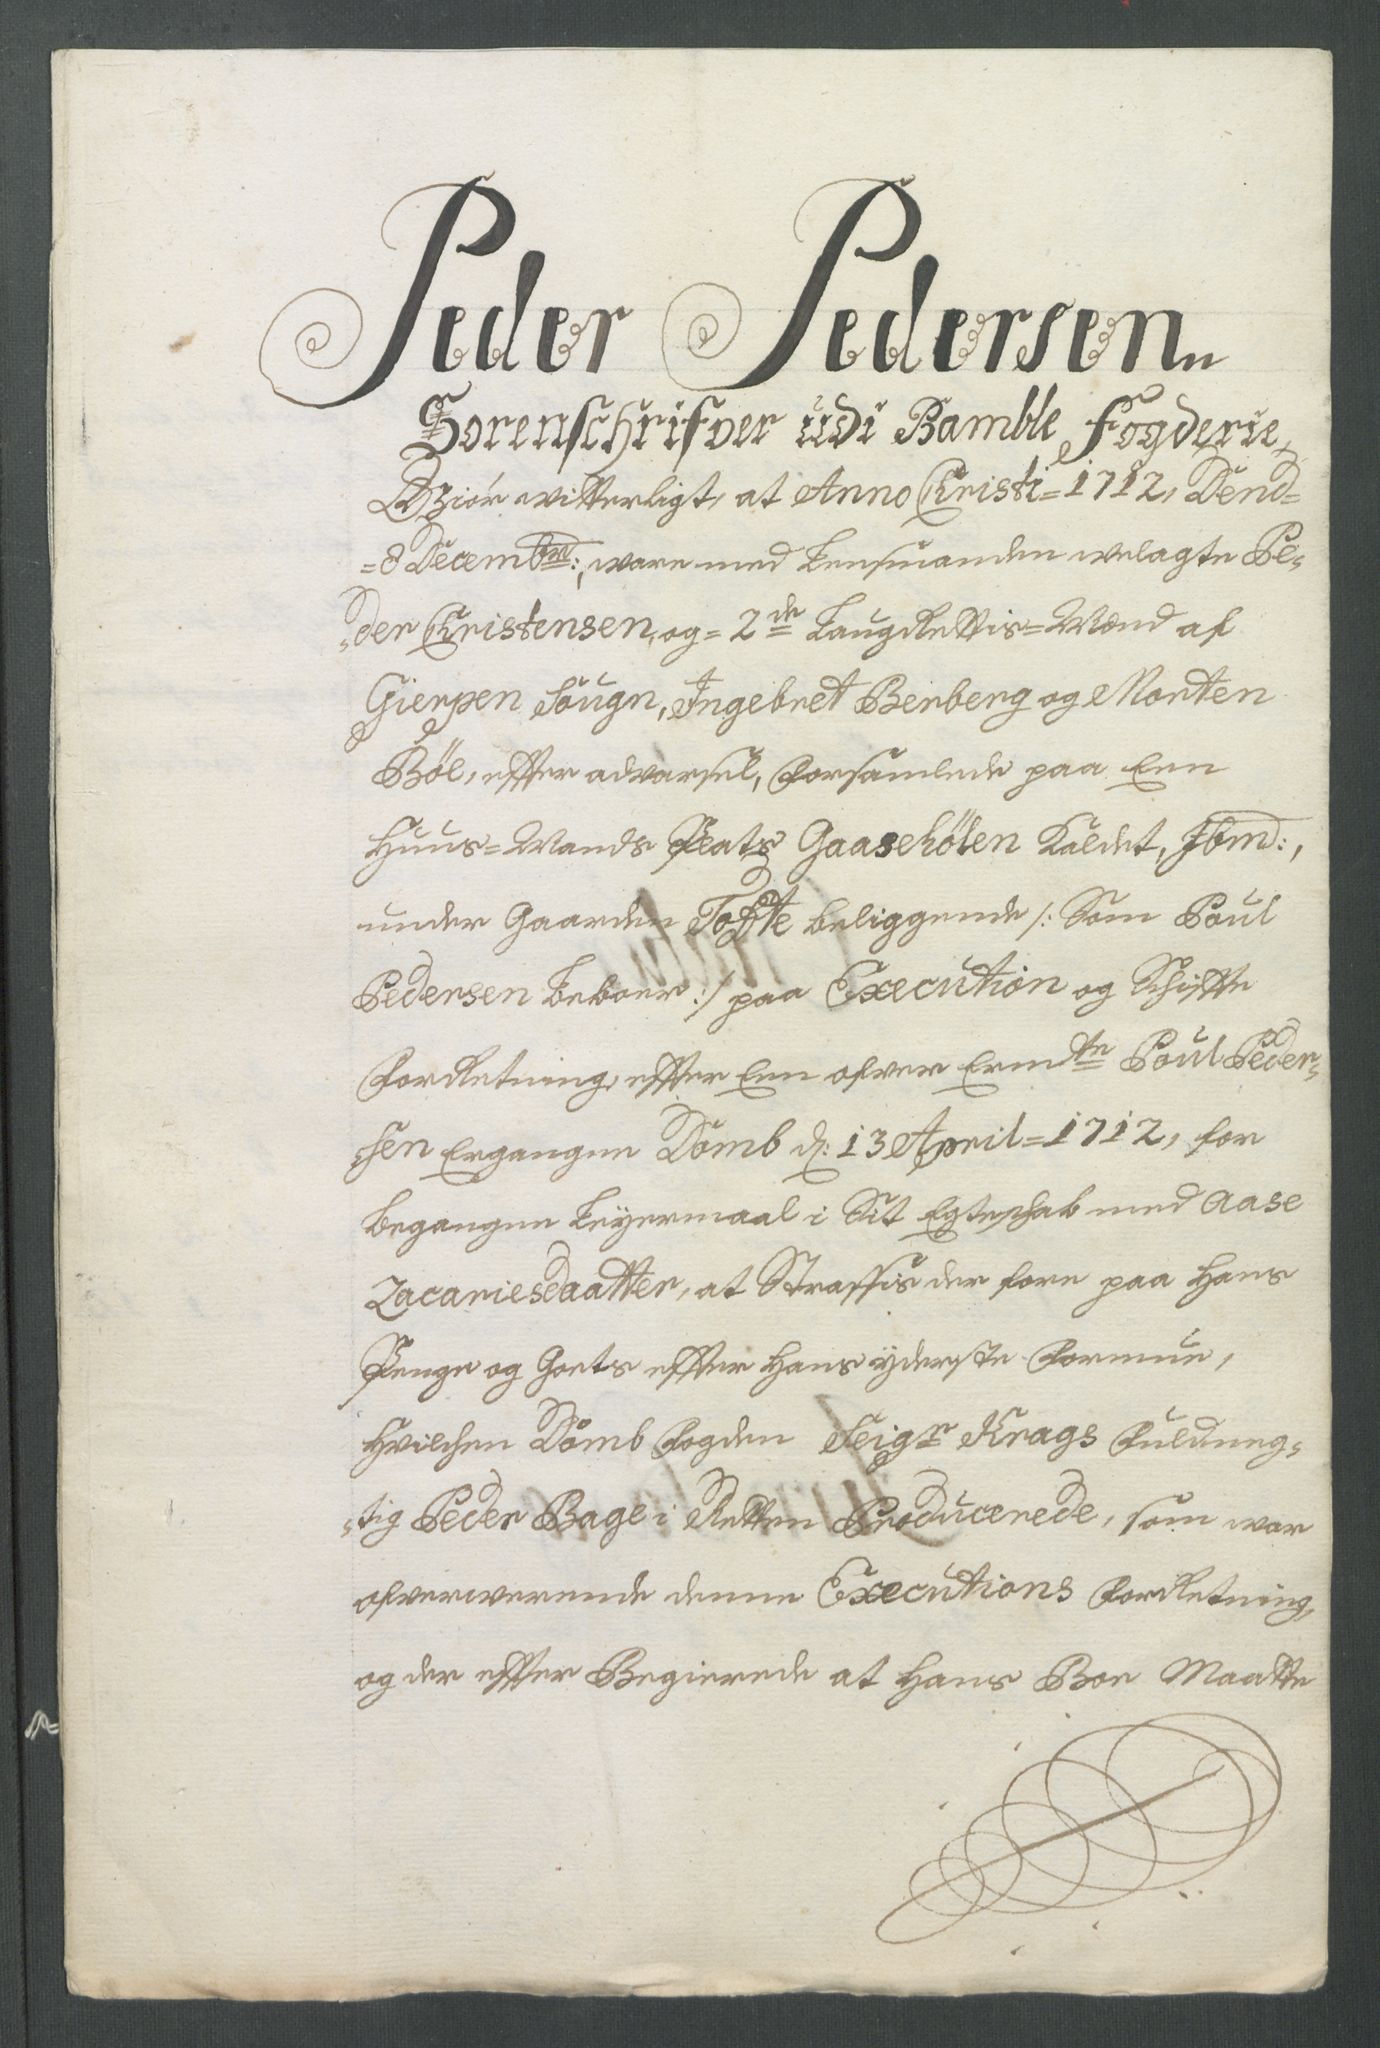 Peder Pedersen
Sorenschrifver udi Bamble Fogderie,
Giór vitterligt, at Anno Christi=1712, Dend=
=8 Decembr:, ware med Lensmanden welagte Pe=
=der Christensen, og=2de Laugrettis=Mænd af
Gierpen Sougn, Ingebret Berberg og Morten
Böl, effter advarsel, forsamlede paa Een
Huus=Mands Plats Gaasehölen kaldet, Ibm:,
under Gaarden Toffte beliggende /: Som Poul
Pedersen beboer :/ paa Execution og Schiffte
forretning, effter Een ofver Ermdte Poul Peder=
=sen Ergangne Domb d: 13 April=1712, for
begangne Leyermaal i Sit Egteschab med Aase
Zacariesdaatter, at Straffis der fore paa Hans
Penge og Goets effter hans ÿderste formue,
Hvilchen Domb fogden Seigr Krags fuldmeg=
=tig Peder Bage i Retten Producerede, som war
ofverwerende denne Executions forretning,
og der effter Begierede at hans Boe Maatte